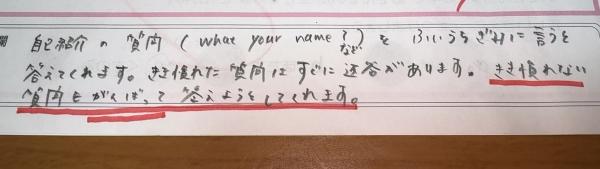 欄 自己紹介の質問(what your name?など)を ふいうちぎみに言うと
答えてくれます。きき慣れた質問はすぐに返答があります。きき慣れない
質問もがんばって答えようとしてくれます。